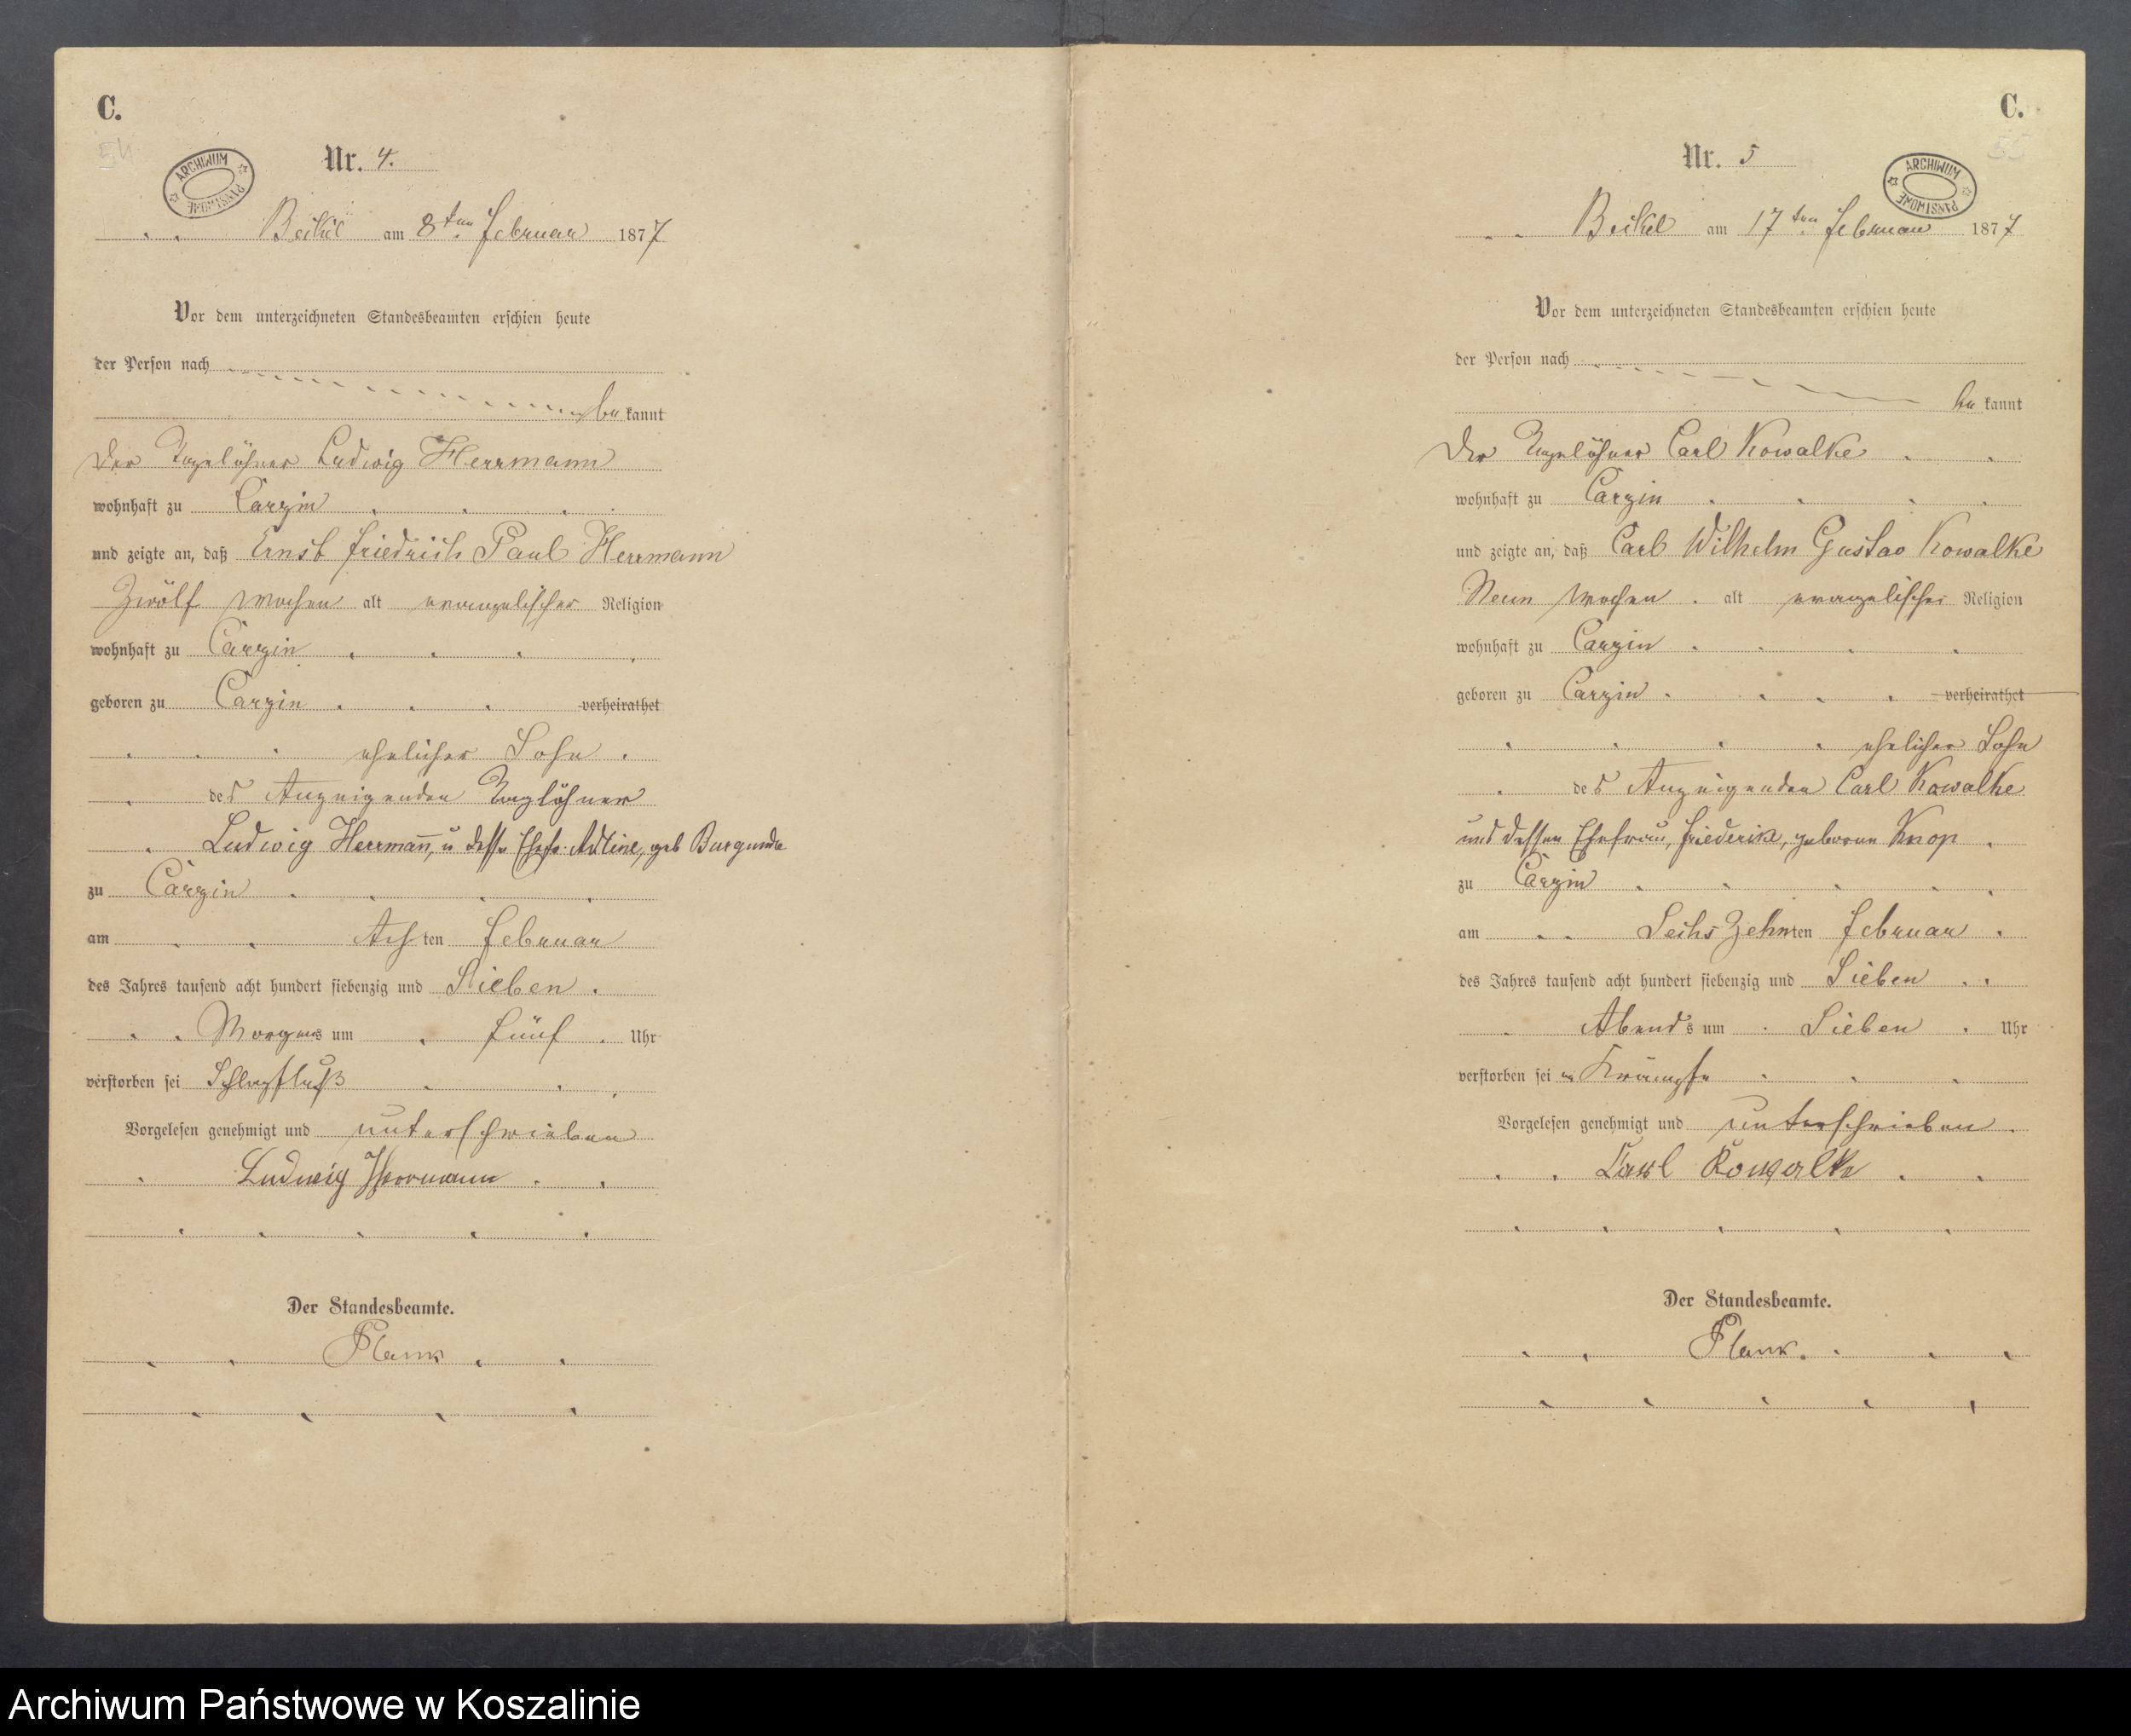 C.
54
ARCHIWUM PAŃSTWOWE
Nr. 4.
Beikel am 8ten Februar 1877
Vor dem unterzeichneten Standesbeamten erschien heute
der Person nach
be kannt
Der Tagelöhner Ludwig Herrmann
wohnhaft zu Carzin
und zeigte an, daß Ernst Friedrich Paul Herrmann
Zwölf Wochen alt evangelischer Religion
wohnhaft zu Carzin
geboren zu Carzin verheirathet
ehelicher Sohn
des Anzeigenden Taglöhner
Ludwig Herrmann, u dess Ehefr. geb Burgunde
zu Carzin
am Achten Februar
des Jahres tausend acht hundert siebenzig und Sieben
Morgens um fünf Uhr
verstorben sei Schlagfluß
Vorgelesen genehmigt und unterschrieben
Ludwig Herrmann
Der Standesbeamte.
Plank
C.
55
ARCHIWUM PAŃSTWOWE
Nr. 5
Beikel am 17ten Februar 1877
Vor dem unterzeichneten Standesbeamten erschien heute
der Person nach
be kannt
Der Tagelöhner Carl Kowalke
wohnhaft zu Carzin
und zeigte an, daß Carl Wilhelm Gustav Kowalke
Neun Wochen alt evangelischer Religion
wohnhaft zu Carzin
geboren zu Carzin verheirathet
ehelicher Sohn
des Anzeigenden Carl Kowalke
und dessen Ehefrau, Friederike, geborene Knop
zu Carzin
am SechsZehnten Februar
des Jahres tausend acht hundert siebenzig und Sieben
Abends um Sieben Uhr
verstorben sei an Krämpfe
Vorgelesen genehmigt und unterschrieben
Carl Kowalke
Der Standesbeamte.
Plank.
Archiwum Państwowe w Koszalinie